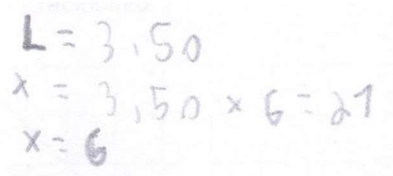 L = 3,50
x = 3,50 × 6 = 21
x = 6